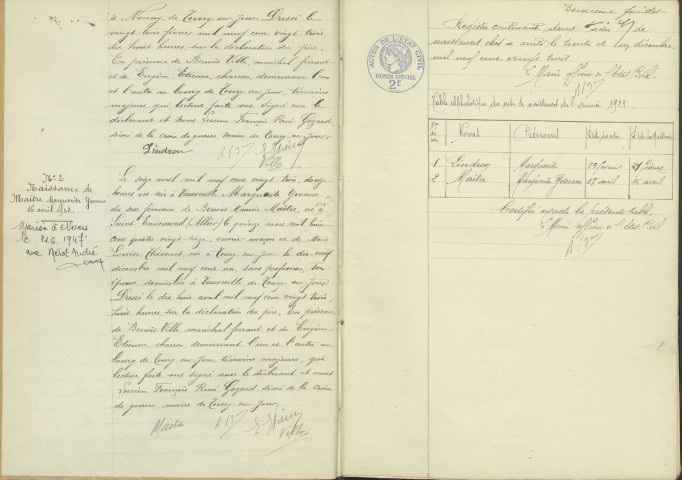 à Nonay, de Toury-sur-Jour. Dressé le
vingt trois février mil neuf cent vingt trois,
dix huit heures, sur la déclaration du père.
En présence de Benoît Ville, maréchal ferrant et
de Eugène Etienne, charron, demeurant l'un
et l'autre au bourg de Toury-sur-Jour, témoins
majeurs, qui lecture faite ont signé avec le
déclarant et Nous Lucien François René Gozard,
décoré de la croix de guerre, maire de Toury-sur-Jour.
Gindron
E. Etienne
Ville
N° 2
Naissance de
Maitre Marguerite Yvonne
16 avril 1923.
Mariée à Nevers
le 21.6.1947
avec André
Le seize avril mil neuf cent vingt trois, douze
heures est née à Vauvreille Marguerite Yvonne
du sexe féminin de Benoit Maitre, né à
Saint Ennemond (Allier) le quinze mars mil huit
cent quatre vingt seize, ouvrier maçon et de Marie
Louise, née à Toury le dix neuf
décembre mil neuf cent un, sans profession, son
épouse domiciliés à Vauvreille de Toury sur Jour.
Dressé le dix huit avril mil neuf cent vingt trois
huit heures, sur la déclaration du père. En présence
de Benoît Ville maréchal ferrant et de Eugène
Etienne, charron, demeurant l'un et l'autre au
bourg de Toury sur Jour, témoins majeurs, qui
lecture faite ont signé avec le déclarant et nous
Lucien François René Gozard, décoré de la croix
de guerre, maire de Toury sur Jour.
Maitre
E. Etienne
Ville
Deuxième feuillet
Registre contenant deux actes de
naissance clos et arrêté le trente et un décembre
mil neuf cent vingt trois
Le Maire officier de l'Etat Civil
ACTES DE L'ETAT CIVIL
PAPIER SPECIAL
2F
Table alphabétique des actes de naissance de l'année 1923.
Nos des actes Noms Prénoms Date des actes Date des naissances
1 Gindron Marguerite 23 février 21 février
2 Maitre Marguerite Yvonne 18 avril 16 avril
Certifié exacte la présente table.
Le Maire officier de l'Etat Civil